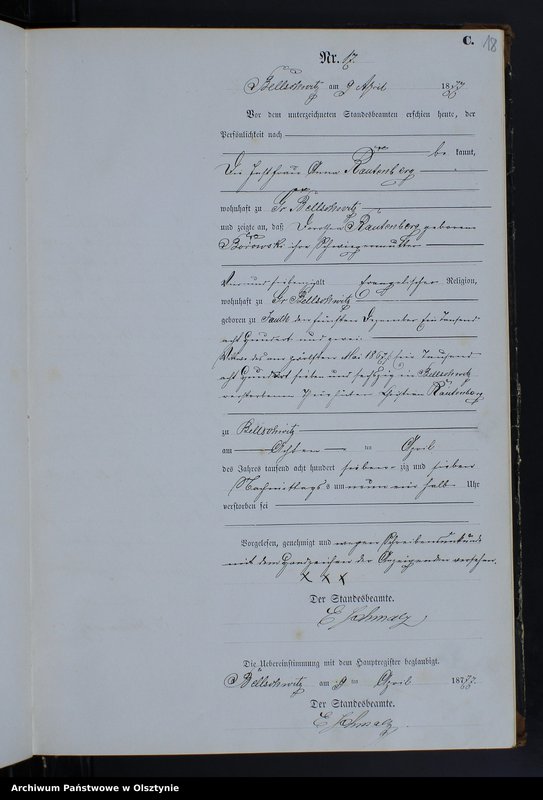 C. 18
Nr. 17.
Bellschwitz am 9 April 1877
Vor dem unterzeichneten Standesbeamten erschien heute, der
Persönlichkeit nach
be kannt,
Die Anna Rautenberg
wohnhaft zu Gr Bellschwitz
und zeigte an, daß Dorothea Rautenberg geborene
Borowski ihre Schwiegermutter
Vierundsiebenzig alt Evangelischer Religion,
wohnhaft zu Gr Bellschwitz
geboren zu den fünften Dezember Ein Tausend
acht Hundert und zwei
am zwölften Mai 1867 (ein Tausend
acht Hundert sieben und sechszig in Bellschwitz
verstorbenen Christian Rautenberg
zu Bellschwitz
am Achten ten April
des Jahres tausend acht hundert siebenzig und sieben
Nachmittags um neun ein halb Uhr
verstorben sei
Vorgelesen, genehmigt und wegen Schreibensunkunde
mit dem Handzeichen der Anzeigenden versehen.
x x x
Der Standesbeamte.
E Schmalz
Die Uebereinstimmung mit dem Hauptregister beglaubigt.
Bellschwitz am 9 ten April 1877.
Der Standesbeamte.
E Schmalz.
Archiwum Państwowe w Olsztynie